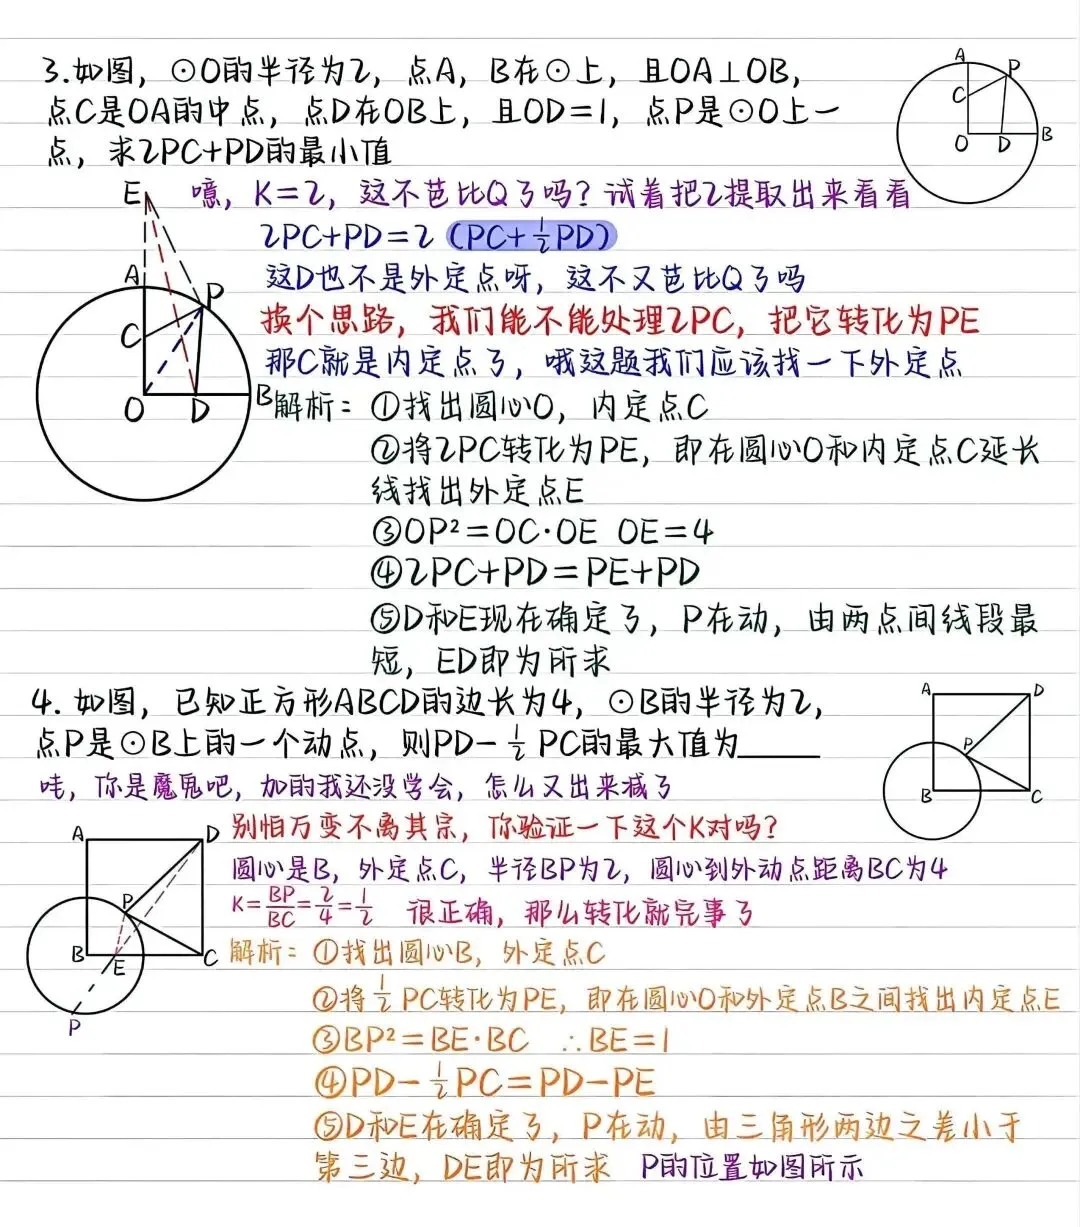 3.如图，⊙O的半径为2，点A，B在⊙上，且OA⊥OB，
点C是OA的中点，点D在OB上，且OD=1，点P是⊙O上一
点，求2PC+PD的最小值
A
P
C
O
D
B
噫，K=2，这不芭比Q了吗？试着把2提取出来看看
2PC+PD=2（PC+½PD）
这D也不是外定点呀，这不又芭比Q了吗
换个思路，我们能不能处理2PC，把它转化为PE
那C就是内定点了，哦这题我们应该找一下外定点
E
A
P
C
O
D
B
解析：①找出圆心O，内定点C
②将2PC转化为PE，即在圆心O和内定点C延长
线找出外定点E
③OP²=OC·OE OE=4
④2PC+PD=PE+PD
⑤D和E现在确定了，P在动，由两点间线段最
短，ED即为所求
4. 如图，已知正方形ABCD的边长为4，⊙B的半径为2，
点P是⊙B上的一个动点，则PD-½PC的最大值为______
A
D
P
B
C
哇，你是魔鬼吧，加的我还没学会，怎么又出来减了
别怕万变不离其宗，你验证一下这个K对吗？
圆心是B，外定点C，半径BP为2，圆心到外动点距离BC为4
K=BP/BC=2/4=1/2 很正确，那么转化就完事了
A
D
P
B
E
C
P
解析：①找出圆心B，外定点C
②将½PC转化为PE，即在圆心O和外定点B之间找出内定点E
③BP²=BE·BC ∴BE=1
④PD-½PC=PD-PE
⑤D和E在确定了，P在动，由三角形两边之差小于
第三边，DE即为所求 P的位置如图所示